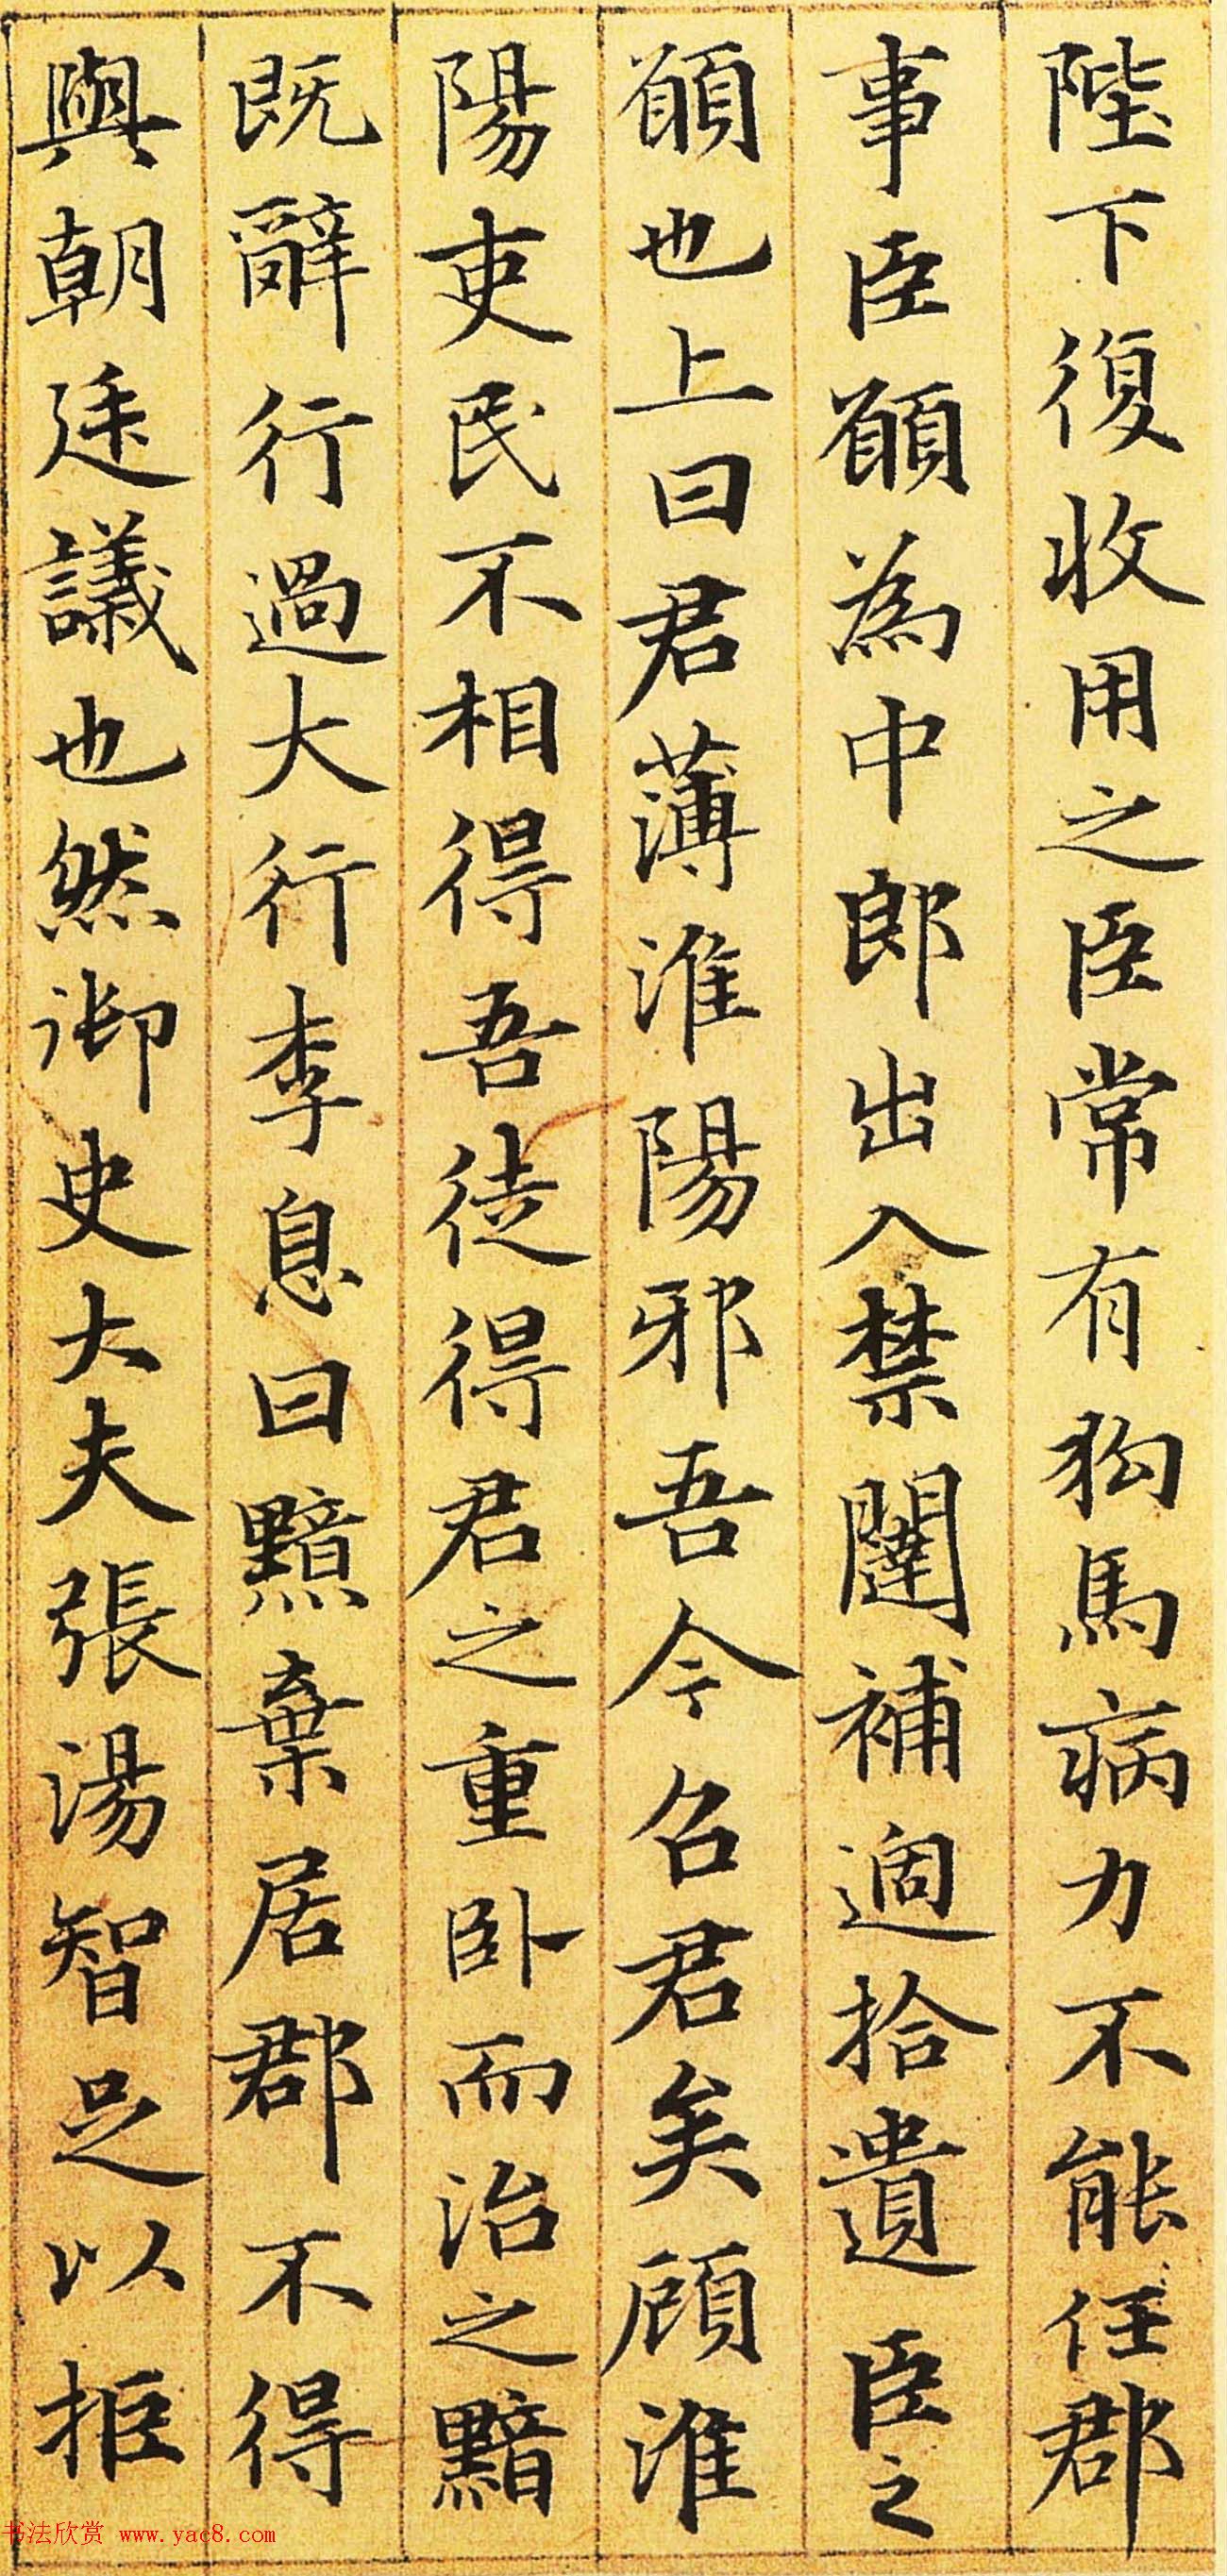 陛下復收用之臣常有狗馬病力不能任郡
事臣願為中郎出入禁闥補過拾遺臣之
願也上曰君薄淮陽邪吾今召君矣顧淮
陽吏民不相得吾徒得君之重卧而治之黯
既辭行過大行李息曰黯棄居郡不得
與朝廷議也然御史大夫張湯智足以拒
书法欣赏 www.yac8.com